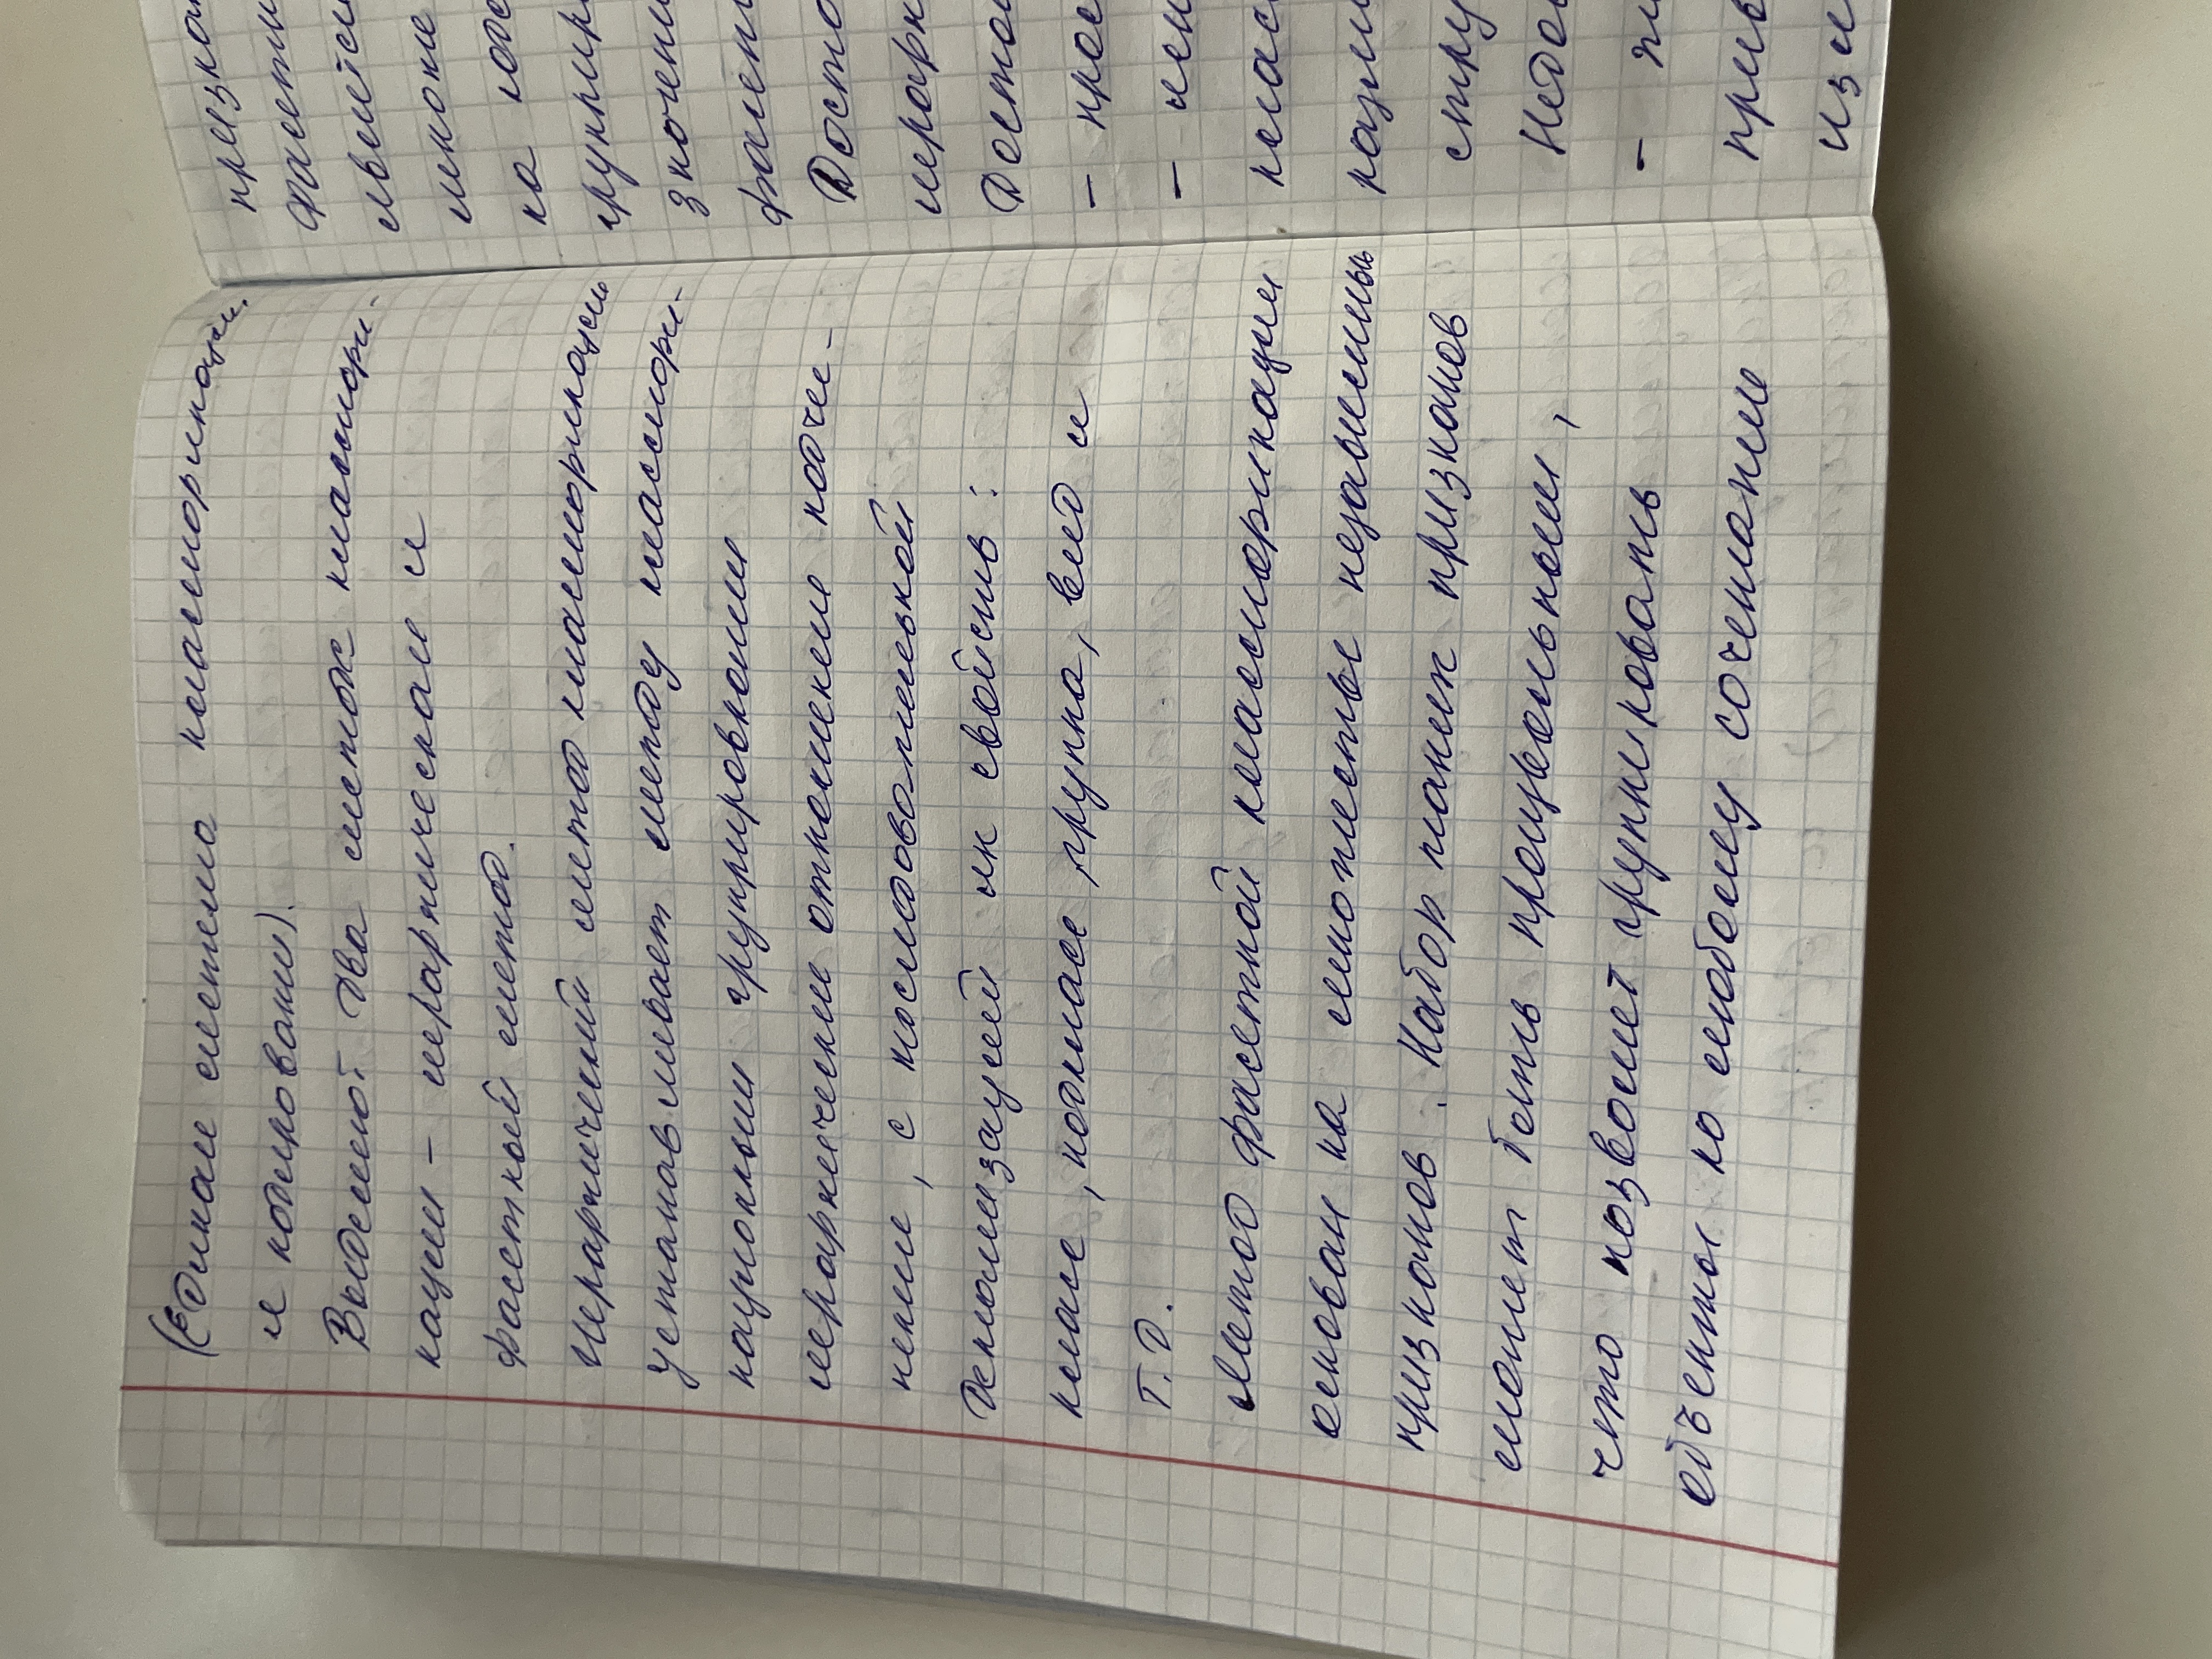 (Единая система классификации
и кодирования).
Выделяют два метода классифи-
кации – иерархическая и
фасетный метод.
Иерархический метод классификации
устанавливает между классифи-
кационными группировками
иерархические отношения подчи-
нения, с последовательной
детализацией их свойств:
класс, подкласс, группа, вид и
т.д.
Метод фасетной классификации
основан на множестве независимых
признаков. Набор таких признаков
может быть произвольным,
что позволяет группировать
объекты по любому сочетанию
призна
фасети
является
многие
на
группир
значени
фасет
Досто
иерархи
Достои
– прос
–
клас
стру
Недо
–